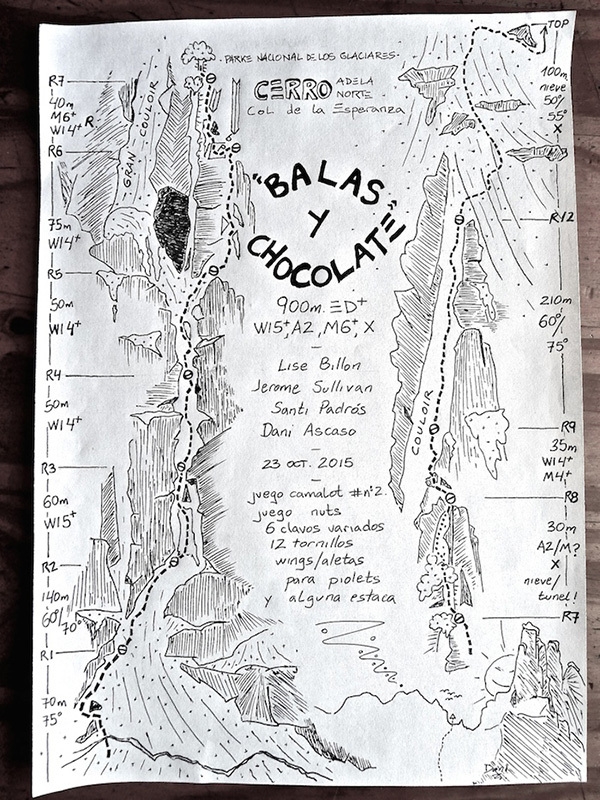 TOP
·PARKE NACIONAL DE LOS GLACIARES·
CERRO ADELA NORTE
COL de la Esperanza
"BALAS
Y
CHOCOLATE"
900m. ED+
WI5+, A2, M6+, X
Lise Billon
Jerome Sullivan
Santi Padrós
Dani Ascaso
23 OCT. 2015
juego camalot #nº2.
juego nuts
6 clavos variados
12 tornillos
wings/aletas
para piolets
y alguna estaca
R7
40m
M6+
WI4+ R
R6
75m
WI4+
R5
50m
WI4+
R4
50m
WI4+
R3
60m
WI5+
R2
140m
60º/
70º
R1
70m
75º
GRAN COULOIR
100m
nieve
50º/
55º
X
R12
210m
60º/
75º
R9
35m
WI4+
M4+
R8
30m
A2/M?
X
nieve/
tunel!
R7
COULOIR
Dani